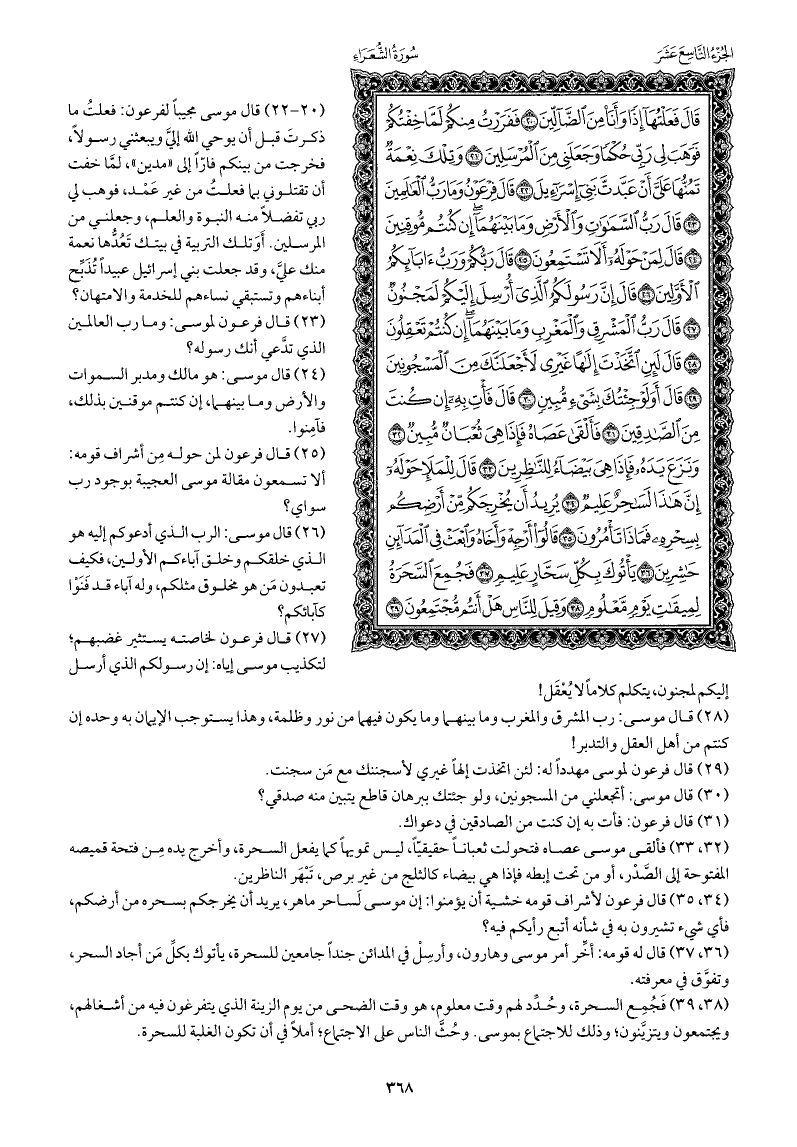 الجزء التاسع عشر
سورة الشعراء
قَالَ فَعَلْتُهَا إِذًا وَأَنَا مِنَ الضَّالِّينَ ۝٢٠ فَفَرَرْتُ مِنكُمْ لَمَّا خِفْتُكُمْ
فَوَهَبَ لِي رَبِّي حُكْمًا وَجَعَلَنِي مِنَ الْمُرْسَلِينَ ۝٢١ وَتِلْكَ نِعْمَةٌ
تَمُنُّهَا عَلَيَّ أَنْ عَبَّدتَّ بَنِي إِسْرَاءِيلَ ۝٢٢ قَالَ فِرْعَوْنُ وَمَا رَبُّ الْعَالَمِينَ
۝٢٣ قَالَ رَبُّ السَّمَاوَاتِ وَالْأَرْضِ وَمَا بَيْنَهُمَا إِن كُنتُم مُّوقِنِينَ
۝٢٤ قَالَ لِمَنْ حَوْلَهُ أَلَا تَسْتَمِعُونَ ۝٢٥ قَالَ رَبُّكُمْ وَرَبُّ ءَابَائِكُمُ
الْأَوَّلِينَ ۝٢٦ قَالَ إِنَّ رَسُولَكُمُ الَّذِي أُرْسِلَ إِلَيْكُمْ لَمَجْنُونٌ
۝٢٧ قَالَ رَبُّ الْمَشْرِقِ وَالْمَغْرِبِ وَمَا بَيْنَهُمَا إِن كُنتُمْ تَعْقِلُونَ
۝٢٨ قَالَ لَئِنِ اتَّخَذْتَ إِلَٰهًا غَيْرِي لَأَجْعَلَنَّكَ مِنَ الْمَسْجُونِينَ
۝٢٩ قَالَ أَوَلَوْ جِئْتُكَ بِشَيْءٍ مُّبِينٍ ۝٣٠ قَالَ فَأْتِ بِهِ إِن كُنتَ
مِنَ الصَّادِقِينَ ۝٣١ فَأَلْقَىٰ عَصَاهُ فَإِذَا هِيَ ثُعْبَانٌ مُّبِينٌ ۝٣٢
وَنَزَعَ يَدَهُ فَإِذَا هِيَ بَيْضَاءُ لِلنَّاظِرِينَ ۝٣٣ قَالَ لِلْمَلَإِ حَوْلَهُ
إِنَّ هَٰذَا لَسَاحِرٌ عَلِيمٌ ۝٣٤ يُرِيدُ أَن يُخْرِجَكُم مِّنْ أَرْضِكُم
بِسِحْرِهِ فَمَاذَا تَأْمُرُونَ ۝٣٥ قَالُوا أَرْجِهْ وَأَخَاهُ وَابْعَثْ فِي الْمَدَائِنِ
حَاشِرِينَ ۝٣٦ يَأْتُوكَ بِكُلِّ سَحَّارٍ عَلِيمٍ ۝٣٧ فَجُمِعَ السَّحَرَةُ
لِمِيقَاتِ يَوْمٍ مَّعْلُومٍ ۝٣٨ وَقِيلَ لِلنَّاسِ هَلْ أَنتُم مُّجْتَمِعُونَ ۝٣٩
(٢٠-٢٢) قال موسى مجيباً لفرعون: فعلتُ ما
ذكرتَ قبل أن يوحي الله إليَّ ويبعثني رسولاً،
فخرجت من بينكم فارّاً إلى «مدين»، لمَّا خفت
أن تقتلوني بما فعلتُ من غير عَمْد، فوهب لي
ربي تفضلاً منه النبوة والعلم، وجعلني من
المرسلين. أوَتلك التربية في بيتك تَعُدُّها نعمة
منك عليَّ، وقد جعلت بني إسرائيل عبيداً تُذَبِّح
أبناءهم وتستبقي نساءهم للخدمة والامتهان؟
(٢٣) قال فرعون لموسى: وما رب العالمين
الذي تدَّعي أنك رسوله؟
(٢٤) قال موسى: هو مالك ومدبر السموات
والأرض وما بينهما، إن كنتم موقنين بذلك،
فآمِنوا.
(٢٥) قال فرعون لمن حوله مِن أشراف قومه:
ألا تسمعون مقالة موسى العجيبة بوجود رب
سواي؟
(٢٦) قال موسى: الرب الذي أدعوكم إليه هو
الذي خلقكم وخلق آباءكم الأولين، فكيف
تعبدون مَن هو مخلوق مثلكم، وله آباء قد فَنَوْا
كآبائكم؟
(٢٧) قال فرعون لخاصته يستثير غضبهم؛
لتكذيب موسى إياه: إن رسولكم الذي أرسل
إليكم لمجنون، يتكلم كلاماً لا يُعْقَل!
(٢٨) قال موسى: رب المشرق والمغرب وما بينهما وما يكون فيهما من نور وظلمة، وهذا يستوجب الإيمان به وحده إن
كنتم من أهل العقل والتدبر!
(٢٩) قال فرعون لموسى مهدداً له: لئن اتخذت إلهاً غيري لأسجننك مع مَن سجنت.
(٣٠) قال موسى: أتجعلني من المسجونين، ولو جئتك ببرهان قاطع يتبين منه صدقي؟
(٣١) قال فرعون: فأت به إن كنت من الصادقين في دعواك.
(٣٢، ٣٣) فألقى موسى عصاه فتحولت ثعباناً حقيقيّاً، ليس تمويهاً كما يفعل السحرة، وأخرج يده مِن فتحة قميصه
المفتوحة إلى الصَّدْر، أو من تحت إبطه فإذا هي بيضاء كالثلج من غير برص، تَبْهَر الناظرين.
(٣٤، ٣٥) قال فرعون لأشراف قومه خشية أن يؤمنوا: إن موسى لَساحر ماهر، يريد أن يخرجكم بسحره من أرضكم،
فأي شيء تشيرون به في شأنه أتبع رأيكم فيه؟
(٣٦، ٣٧) قال له قومه: أخِّر أمر موسى وهارون، وأرسِلْ في المدائن جنداً جامعين للسحرة، يأتوك بكلِّ مَن أجاد السحر،
وتفوَّق في معرفته.
(٣٨، ٣٩) فَجُمِع السحرة، وحُدِّد لهم وقت معلوم، هو وقت الضحى من يوم الزينة الذي يتفرغون فيه من أشغالهم،
ويجتمعون ويتزيَّنون؛ وذلك للاجتماع بموسى. وحُثَّ الناس على الاجتماع؛ أملاً في أن تكون الغلبة للسحرة.
٣٦٨